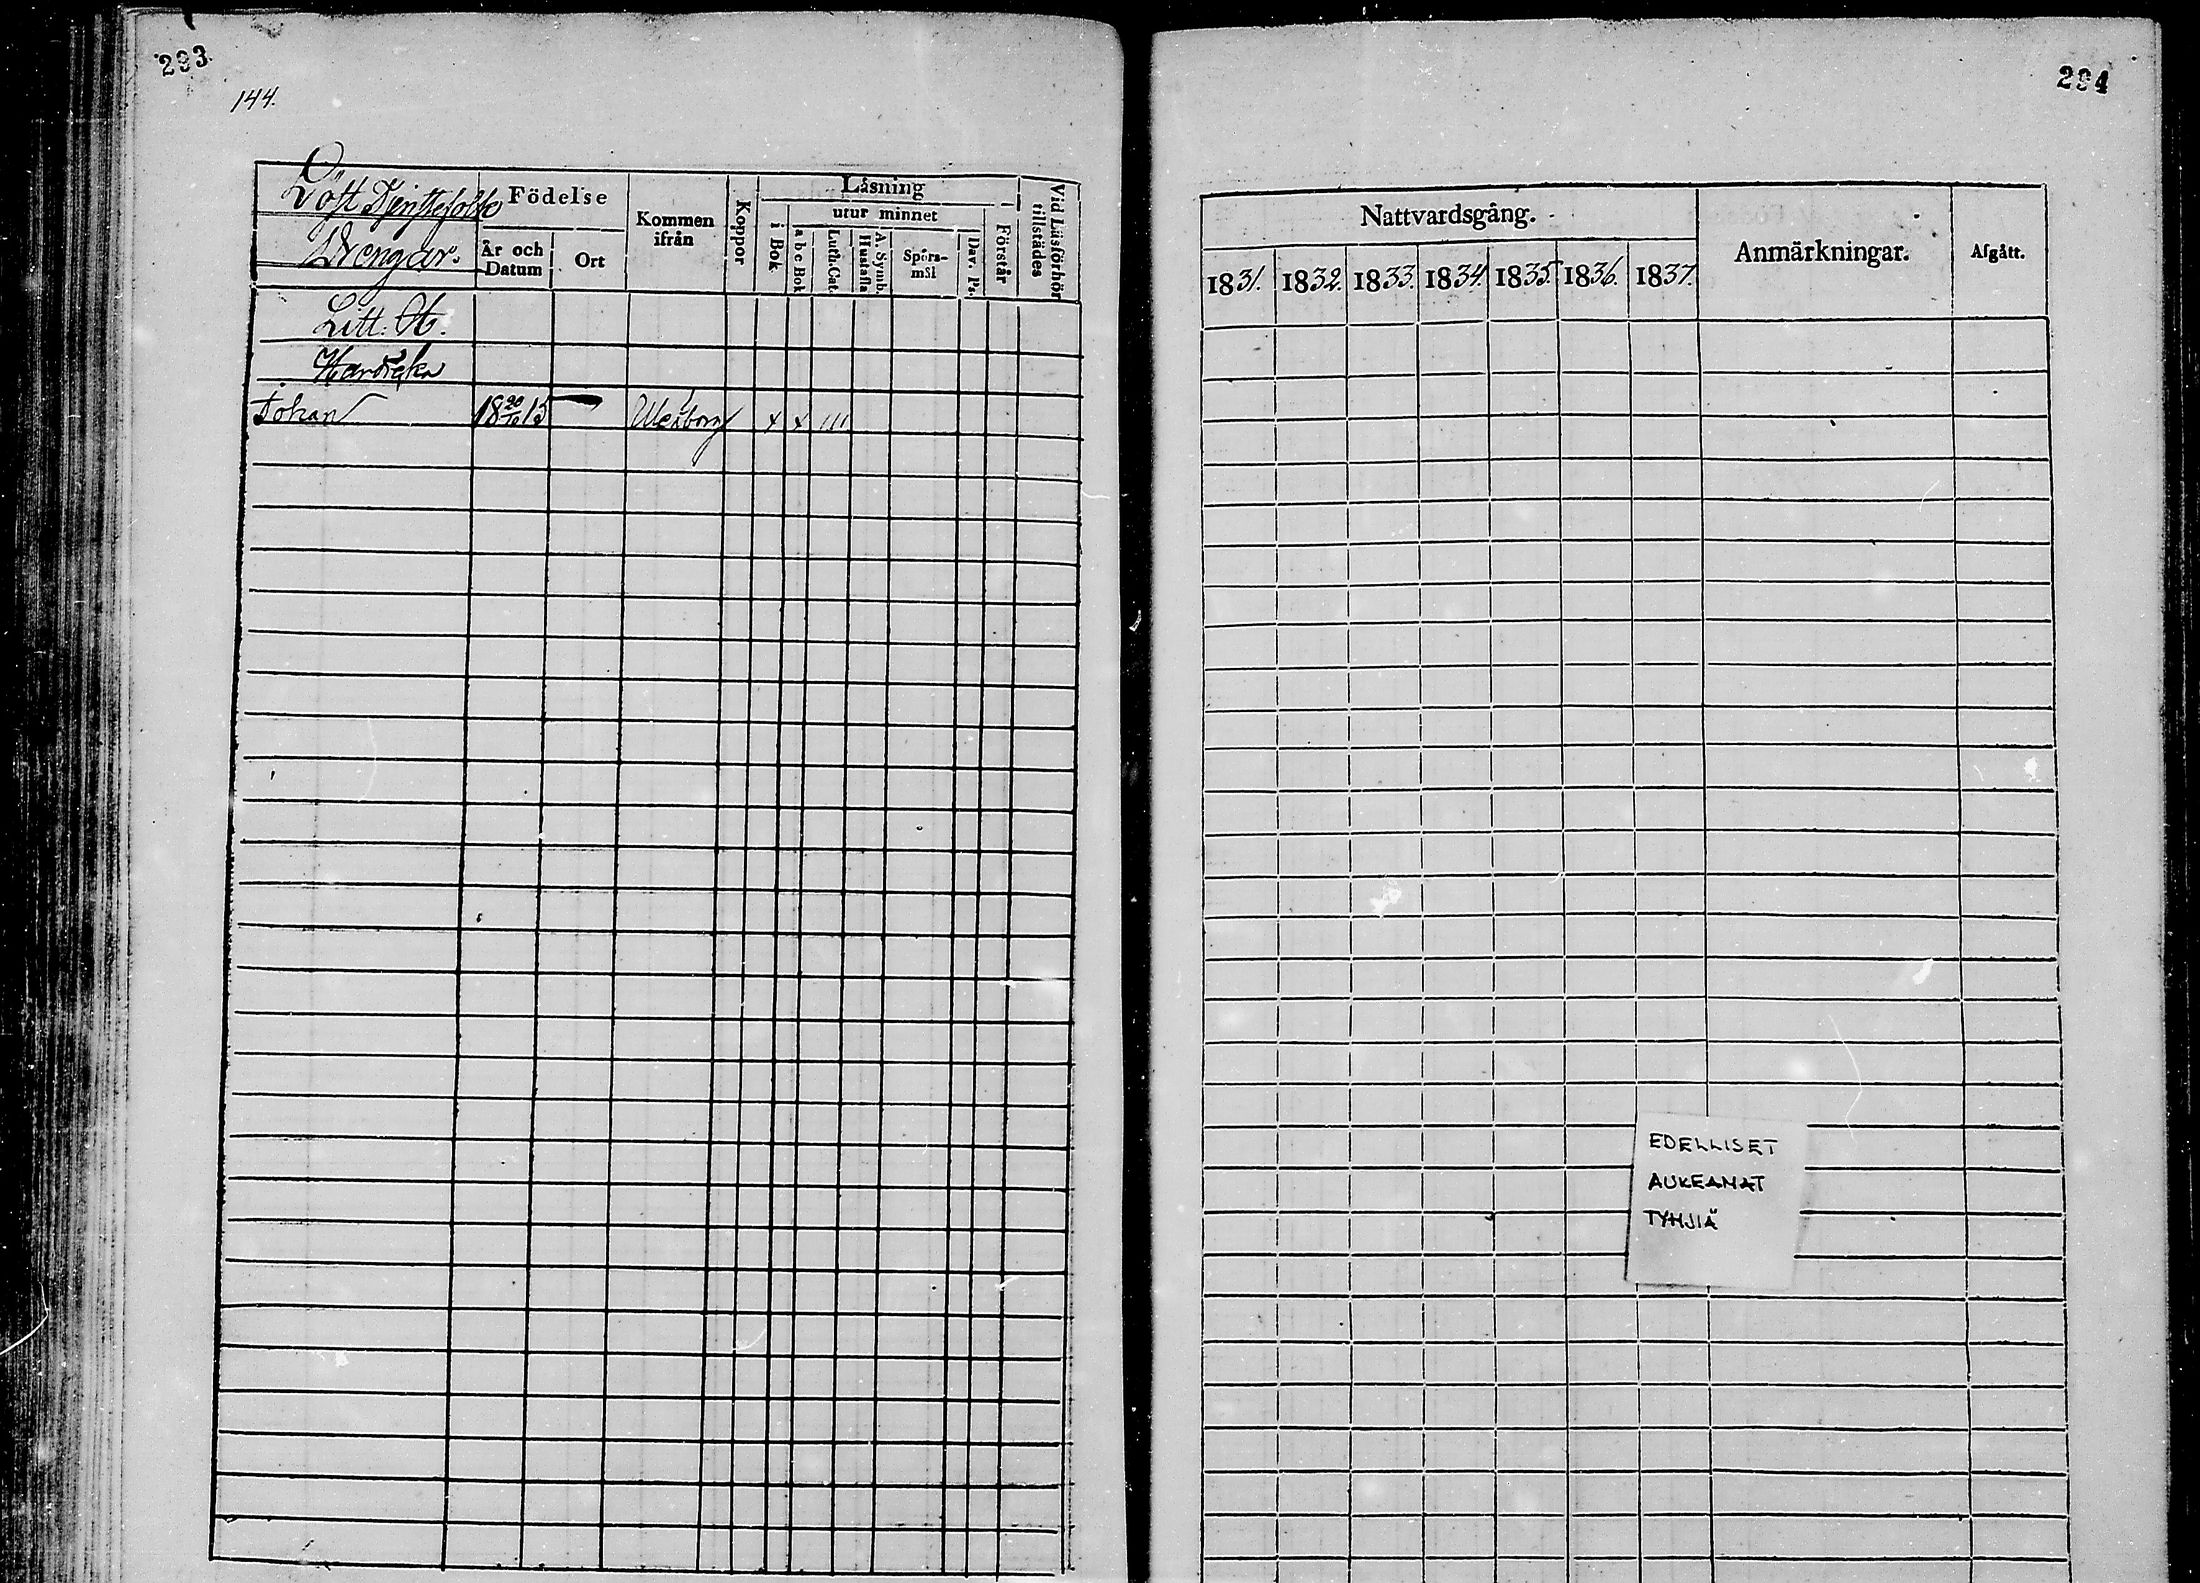 293.
144.
Löst Tjenstefolk
Drengar.
Födelse
År och Datum
Ort
Kommen ifrån
Koppor
Läsning
i Bok
utur minnet
a b c Bok
Luth. Cat.
A. Symb. Hustafla
Spörs-mål
Dav. Ps.
Förstår
Vid Läsförhör tillstädes
Litt.
Johan 18 20/10 15 Uleåborg x x III
294
Nattvardsgång.
1831. 1832. 1833. 1834. 1835. 1836. 1837.
Anmärkningar.
Afgått.
EDELLISET
AUKEAMAT
TYHJIÄ